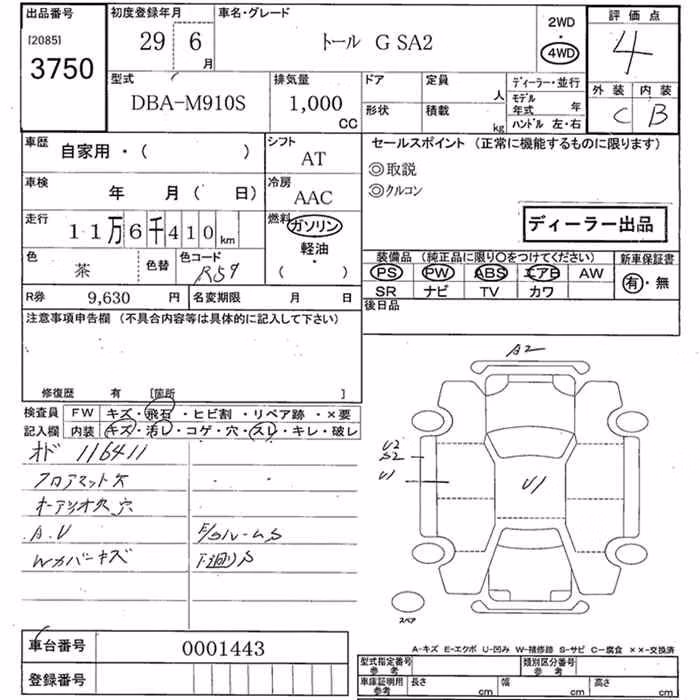 出品番号
[2085]
3750
初度登録年月
29 6
月
車名・グレード
トール G SA2
2WD
・
4WD
評価点
4
外装 内装
C B
型式
DBA-M910S
排気量
1,000
CC
ドア
定員
人
形状
積載
kg
ディーラー・並行
モデル
年式 年
ハンドル 左・右
車歴
自家用・( )
シフト
AT
車検
年 月( 日)
冷房
AAC
走行
11万6千410km
燃料
ガソリン
軽油
・
( )
色
茶
色替
色コード
R59
R券 9,630 円
名変期限 月 日
セールスポイント (正常に機能するものに限ります)
◎取説
◎クルコン
ディーラー出品
装備品 (純正品に限り○をつけてください)
新車保証書
PS PW ABS エアB AW
SR ナビ TV カワ
有・無
後日品
注意事項申告欄 (不具合内容等は具体的に記入して下さい)
修復歴 有 [箇所 ]
検査員
記入欄
FW キズ・飛石・ヒビ割・リペア跡・×要
内装 キズ・汚レ・コゲ・穴・スレ・キレ・破レ
オド 116411
フロアマット欠
A.U
Wカバーキズ
E/ルームS
下廻りS
A2
U2
S2
U1
U1
スペア
A-キズ E-エクボ U-凹み W-補修跡 S-サビ C-腐食 ××-交換済
車台番号 0001443
登録番号
型式指定番号
参考
類別区分番号
参考
車庫証明用
参考
長さ cm
幅 cm
高さ cm